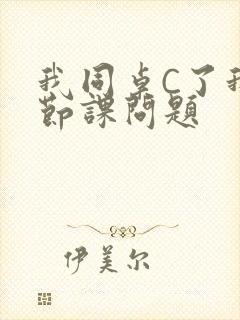 我同桌C了我
节課問題
伊美尔